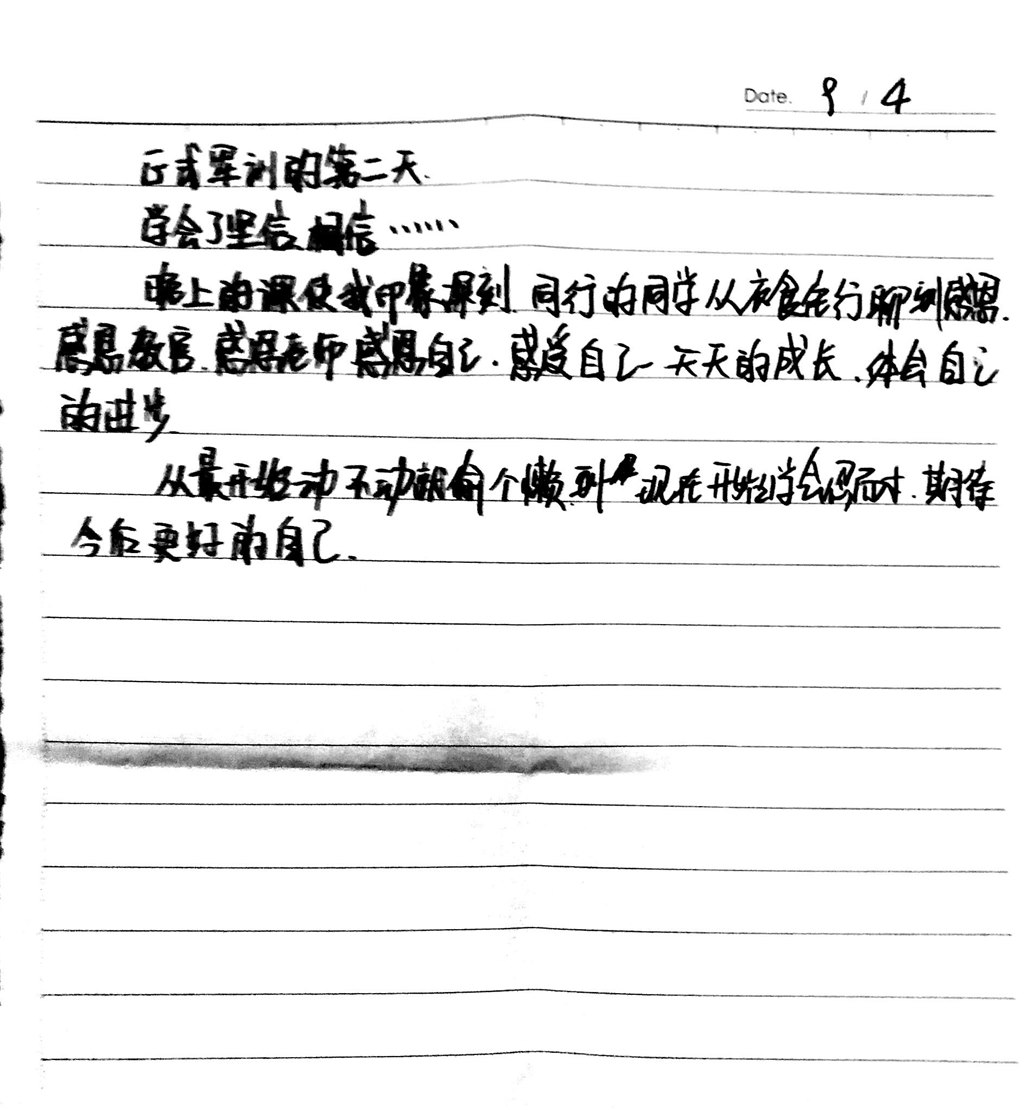 Date. 9 / 4
正式军训的第二天.
学会了坚信、相信……
晚上的课使我印象深刻.同行的同学从衣食住行聊到感恩.
感恩教官.感恩老师感恩自己.感受自己一天天的成长、体会自己
的进步
从最开始动不动就偷个懒.到现在开始学会面对.期待
今后更好的自己.